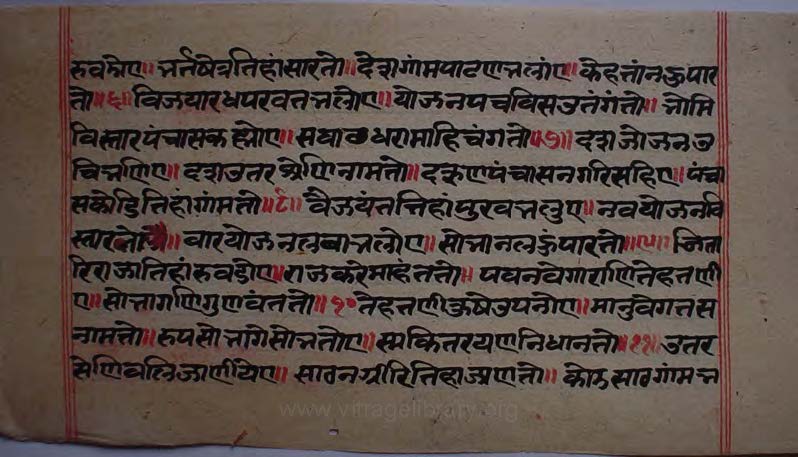 रुवडोए॥ भरतषेत्रतिहांसारतो॥ देशगांमपाटणभलांए॥ केहतांनऊपार
तो॥६॥ विजयारधपरवतभलोए॥ योजनपचविसउतंगंतो॥ भोमि
विस्तारपंचासकह्योए॥ सघाऊधरामाहिचंगतो॥७॥ दशजोजनउ
चिभणिए॥ दशउतरश्रेणिनामतो॥ दक्षणपंचासनगरिसहिए॥ पंचा
सकोडितिहांगांमतो॥८॥ वैजयंततिहांपुरवभलुए॥ नवयोजनवि
स्तारतो॥ बारयोजनलबाभलोए॥ सोभानलहुंपारतो॥९॥ जिता
रिराजातिहांरुवडोए॥ राजकरेमाहंततो॥ पघनवेगाराणितेहतणी
ए॥ सोभागणिगुणवंततो॥१०॥ तेहतणीकूषेउपनोए॥ मानुवेगतस
नामतो॥ रुपसोभागेसोभतोए॥ समकितरयणनिधानतो॥११॥ उतर
सेणिवलिजाणीयेए॥ साठनगरितिहाभणतो॥ कोडसाठगांमभ
www.vitragelibrary.org